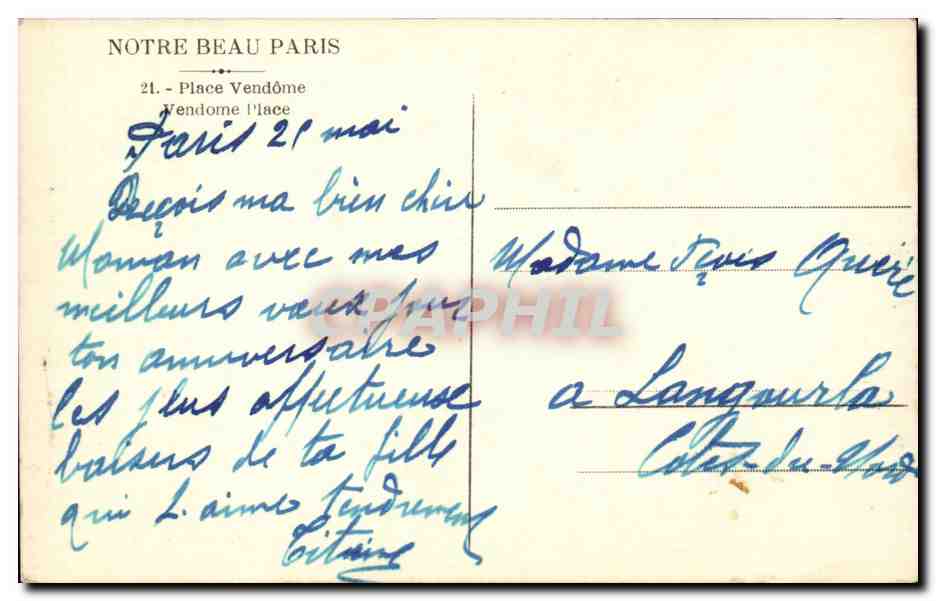 NOTRE BEAU PARIS
21. - Place Vendôme
Vendome Place
Paris 21 mai
Reçois ma bien chère
Maman avec mes
meilleurs vœux pour
ton anniversaire
les plus affectueuse
baisers de ta fille
qui t'aime tendrement
Madame Fçois Quéré
a Langourla
Côtes-du-Nord
CPAPHIL